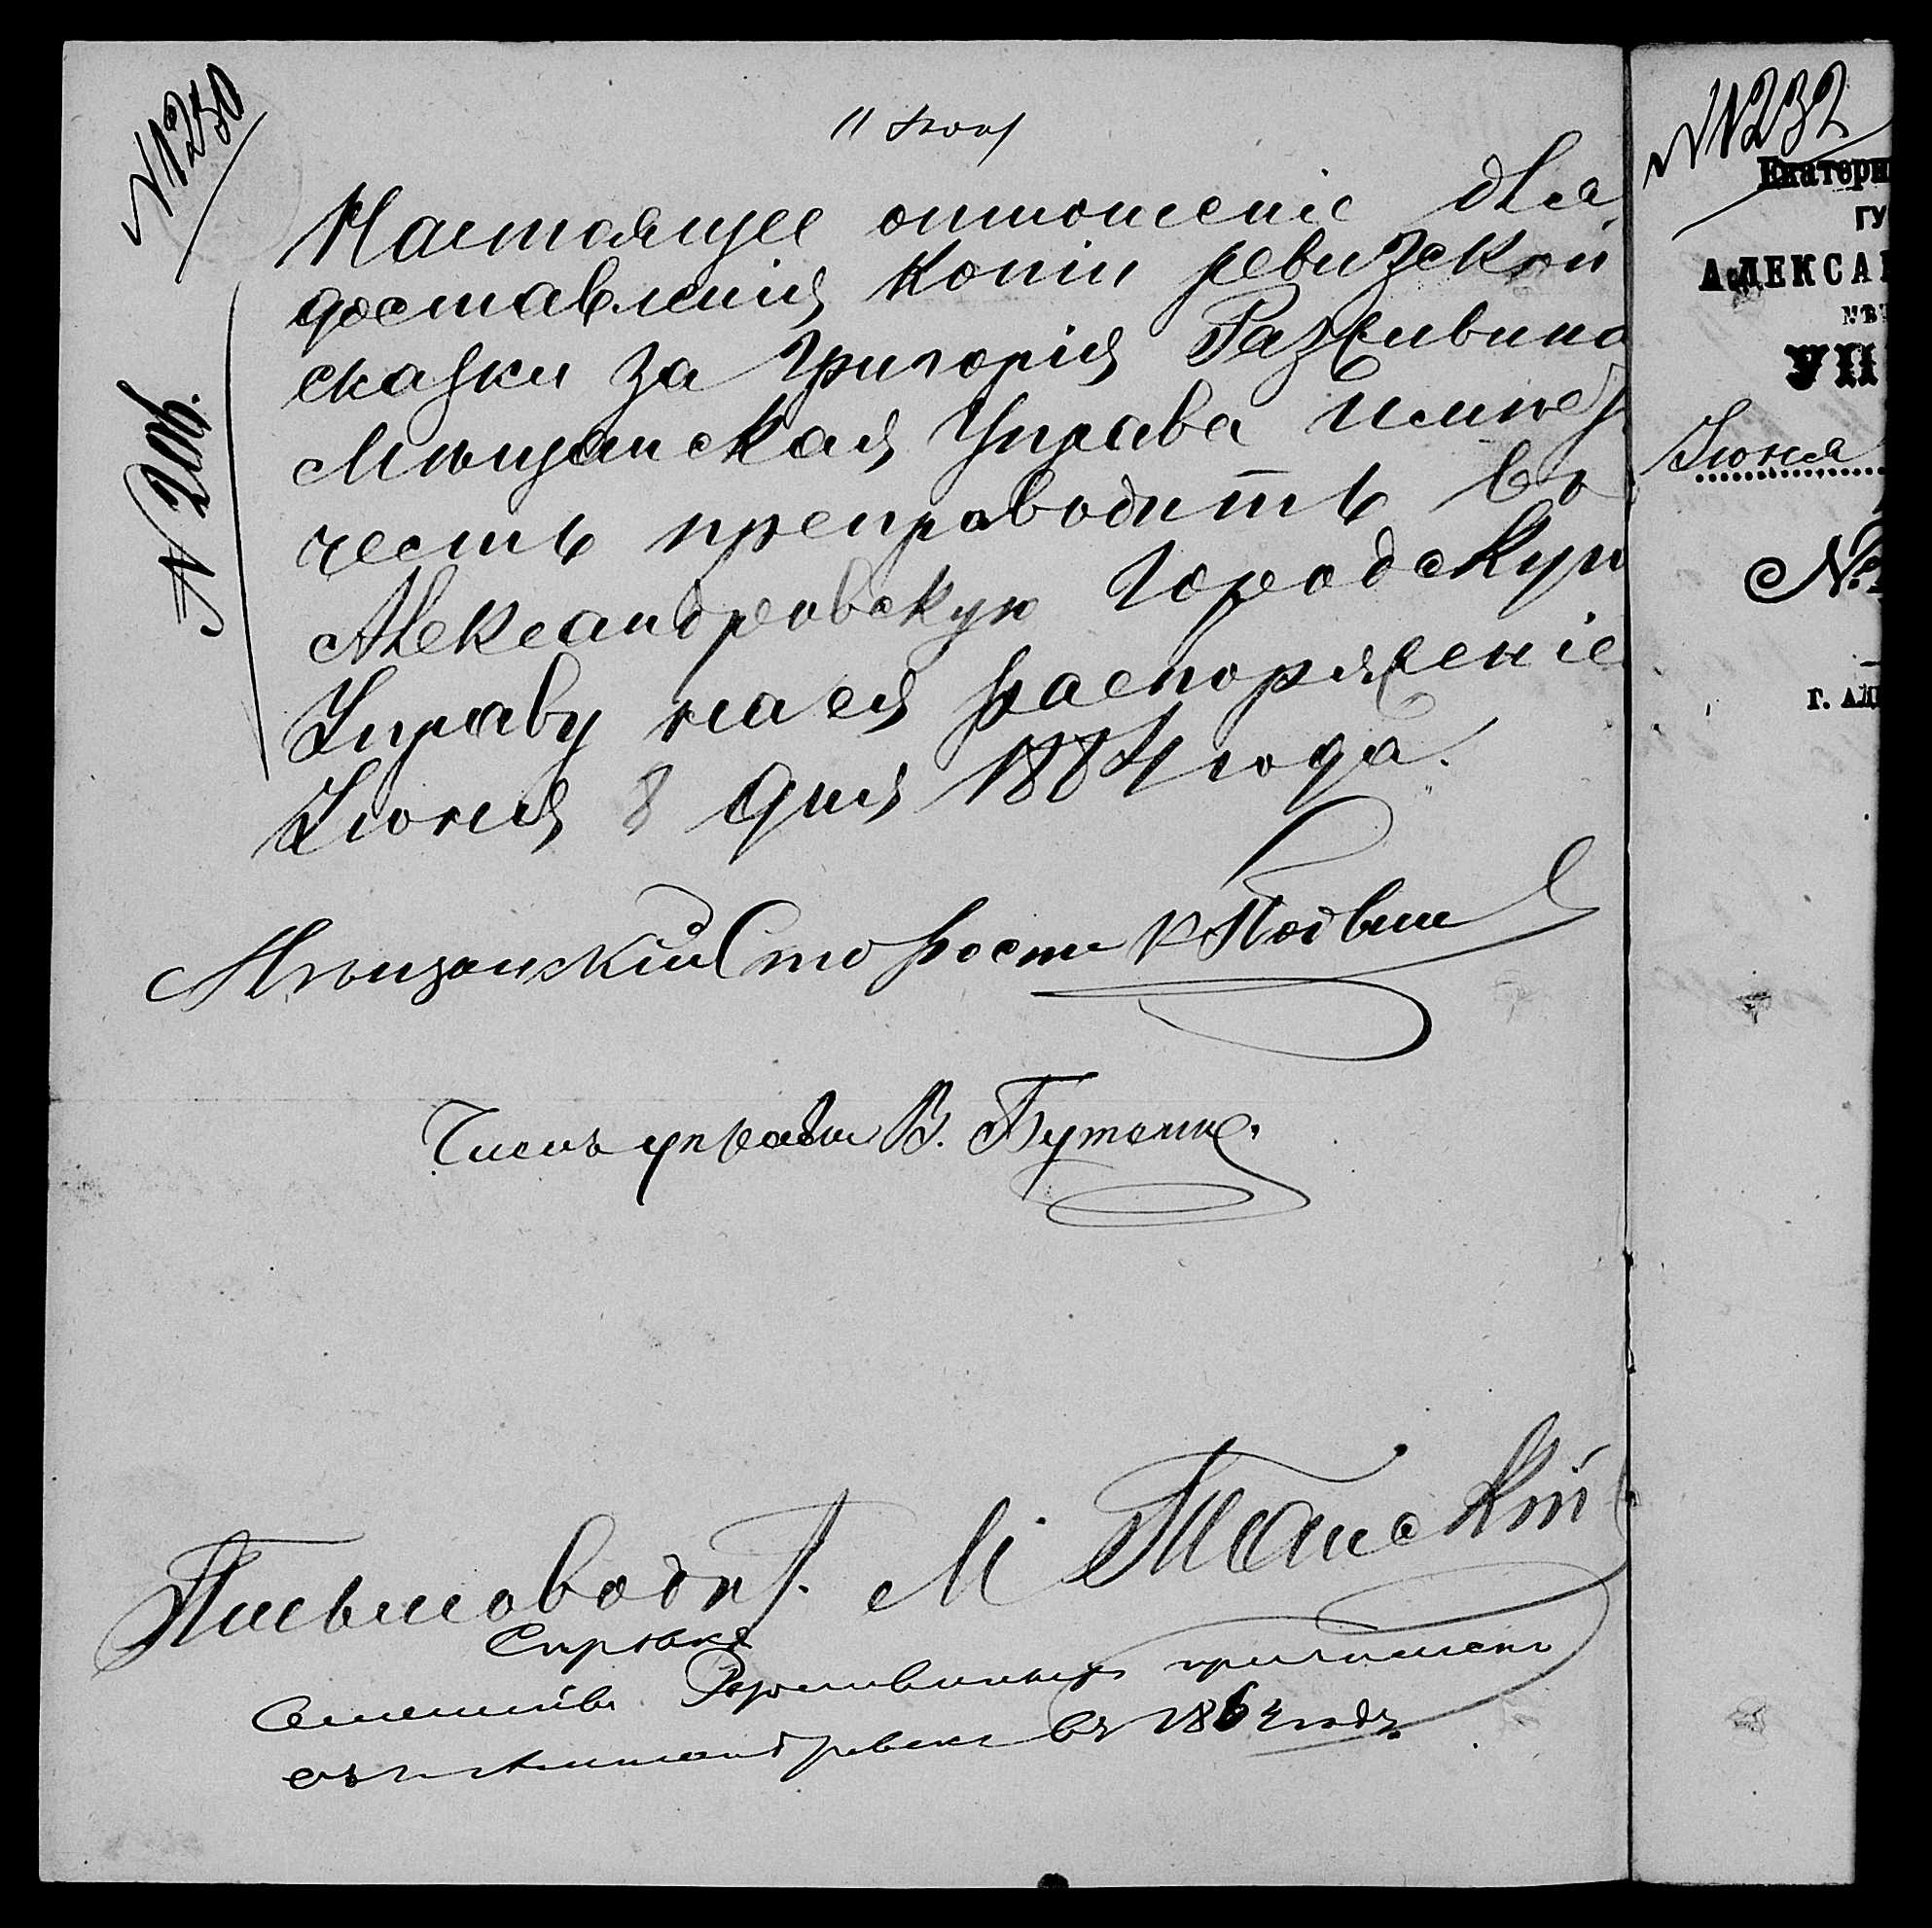 № 1230
11 Июня
№ 206.
Настоящее отношеніе для
доставленія копіи ревизской
сказки за Григорія Разсивина
Мѣщанская Управа имѣетъ
честь препроводить въ
Александровскую Городскую
Управу на ея распоряженіе
Июня 8 дня 1884 года.
Мѣщанскій Староста
Членъ управы В.
Письмовод. М
Справка
Семейство причислено
въ 1864 году
№ 1232
Екатери
ГУ
АЛЕКСА
УП
Июня
№
Г. АЛ